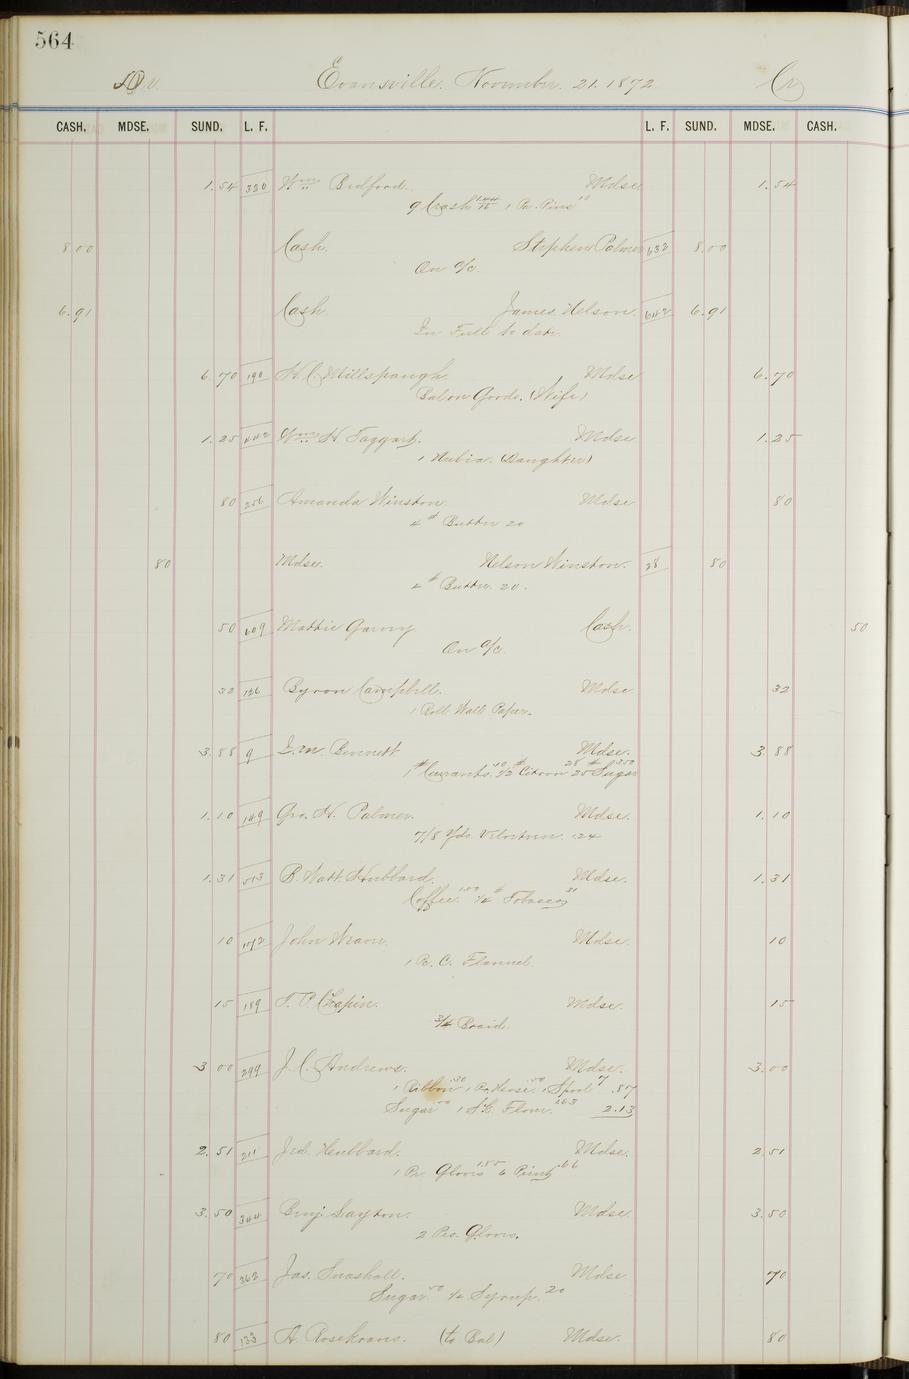 564
Dr. Evansville. November. 21. 1872 Cr
CASH. MDSE. SUND. L. F. L. F. SUND. MDSE. CASH.
1.54 320 Wm Bedford. Mdse 1.54
9 Crash 1.44 1 Pr. Pins 10
8.00 Cash. Stephen Palmer 632 8.00
On a/c.
6.91 Cash James Nelson. 642 6.91
In Full to date.
6.70 190 H. C. Millspaugh. Mdse 6.70
Balon Goods. (Wife)
1.25 442 Wm H Taggart. Mdse 1.25
1 Nubia. (Daughter)
80 256 Amanda Winston. Mdse 80
4 # Butter 20
80 Mdse. Nelson Winston. 28 80
4 # Butter. 20.
50 609 Mattie Garvey Cash. 50
On a/c.
32 126 Byron Campbell. Mdse. 32
1 Roll Wall Paper.
3.88 9 Bennett Mdse. 3.88
1 # Currants. .10 1/2 # Citron 28 25 # Sugar 3.50
1.10 149 Geo. H. Palmer. Mdse. 1.10
7/8 Yds. Velveteen. .24
1.31 513 B. Watt. Hubbard. Mdse. 1.31
Coffee. 1.00 1/4 # Tobacco 31
10 John Mdse. 10
1 Pr. C. Flannel.
15 189 T. P. Chapin. Mdse. 15
3/4 Braid.
3 00 299 J. C. Andrews. Mdse. 3.00
1 Ribbon .30 1 Pr. Hose. .50 1 Spool 7 .87
Sugar .50 1 Sk. Flour. 1.63 2.13
2.51 211 Jed. Hubbard. Mdse. 2.51
1 Pr. Gloves 1.85 6 Print .66
3.50 344 Benj. Layton. Mdse 3.50
2 Prs. Gloves.
70 362 Jas. Snashall. Mdse 70
Sugar. 50 1/4 Syrup. 20
80 133 A. Rosekrans. (to Bal) Mdse. 80